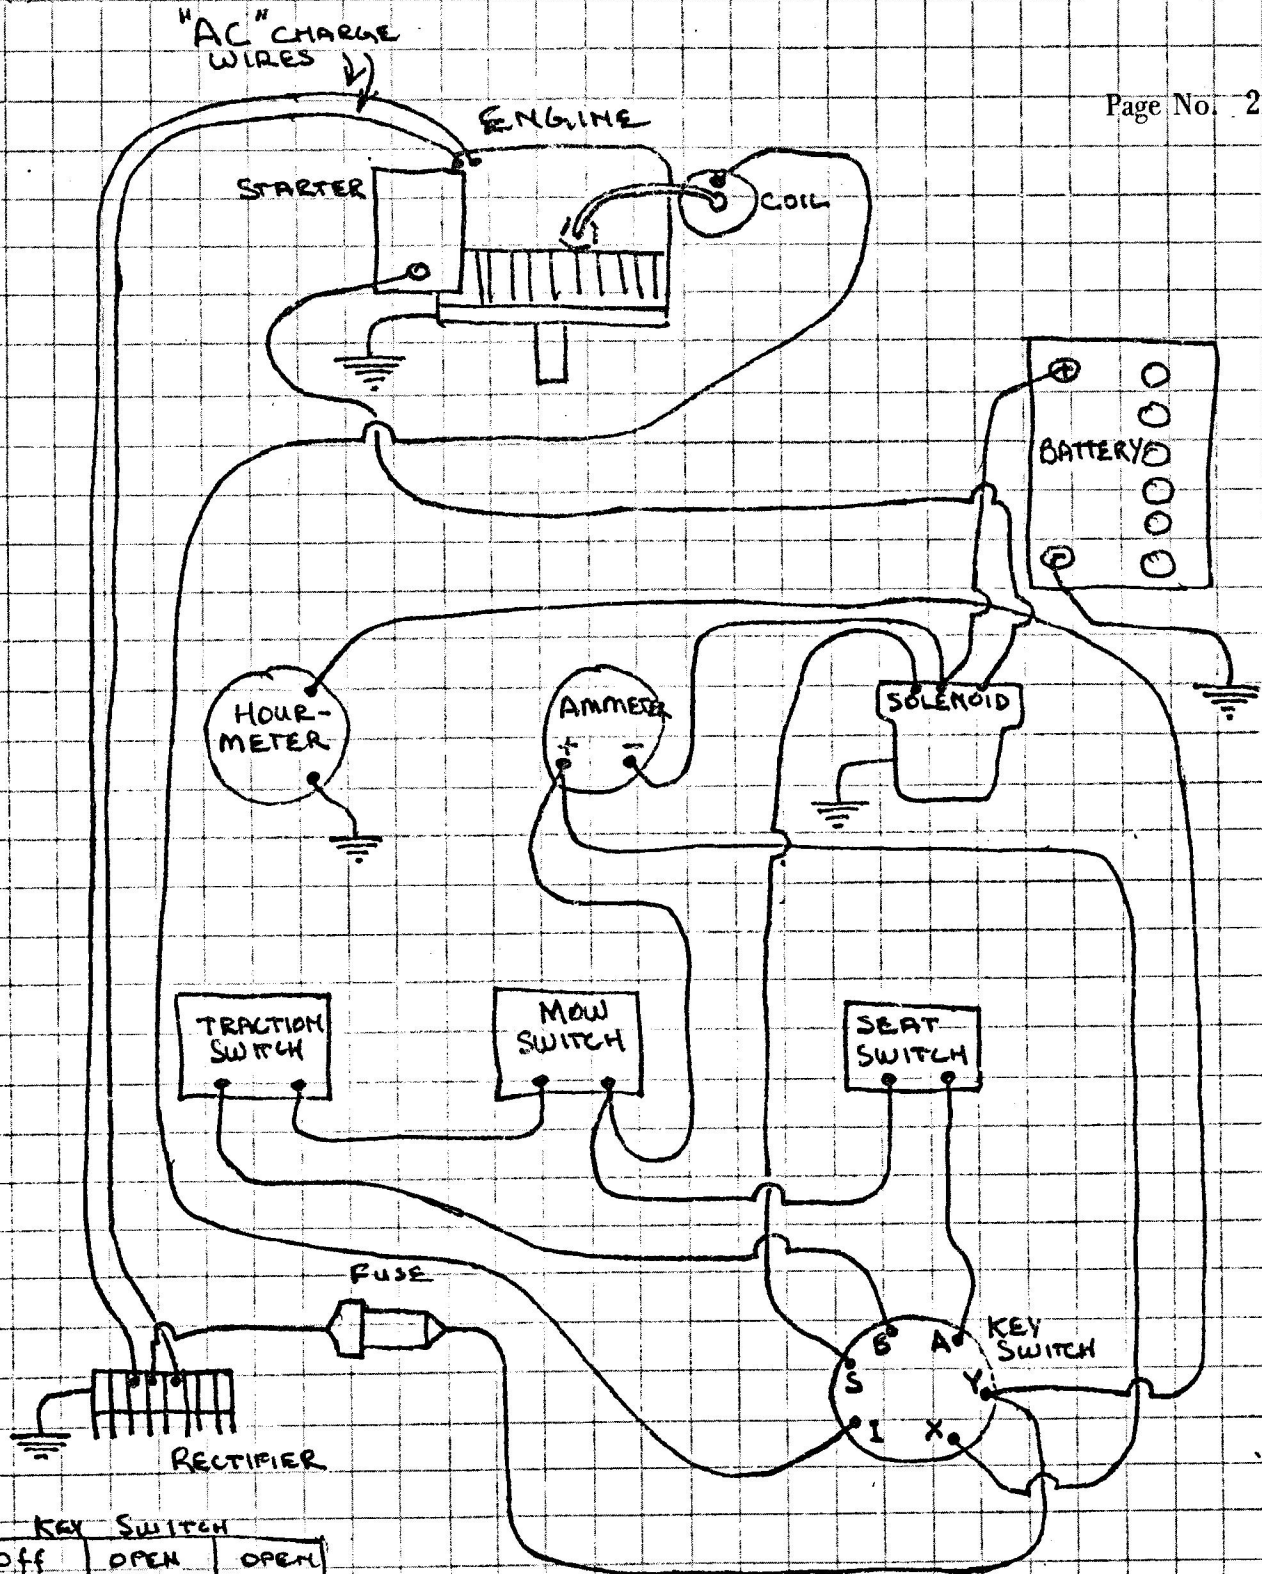 "AC" CHARGE
WIRES
Page No. 2
ENGINE
STARTER
COIL
+
BATTERY
-
HOUR-
METER
AMMETER
+ -
SOLENOID
TRACTION
SWITCH
MOW
SWITCH
SEAT
SWITCH
FUSE
KEY
SWITCH
B A
S Y
I X
RECTIFIER
KEY SWITCH
Off OPEN OPEN